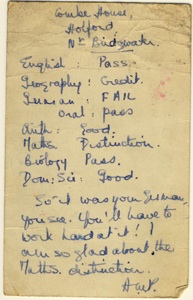 Combe House,
Holford
Nr Bridgwater.
English : Pass.
Geography: Credit.
German : FAIL
Oral: pass
Arith : Good.
Maths Distinction.
Biology Pass.
Dom: Sci : Good.
So it was your German,
you see. You'll have to
work hard at it! I
am so glad about the
Maths distinction.